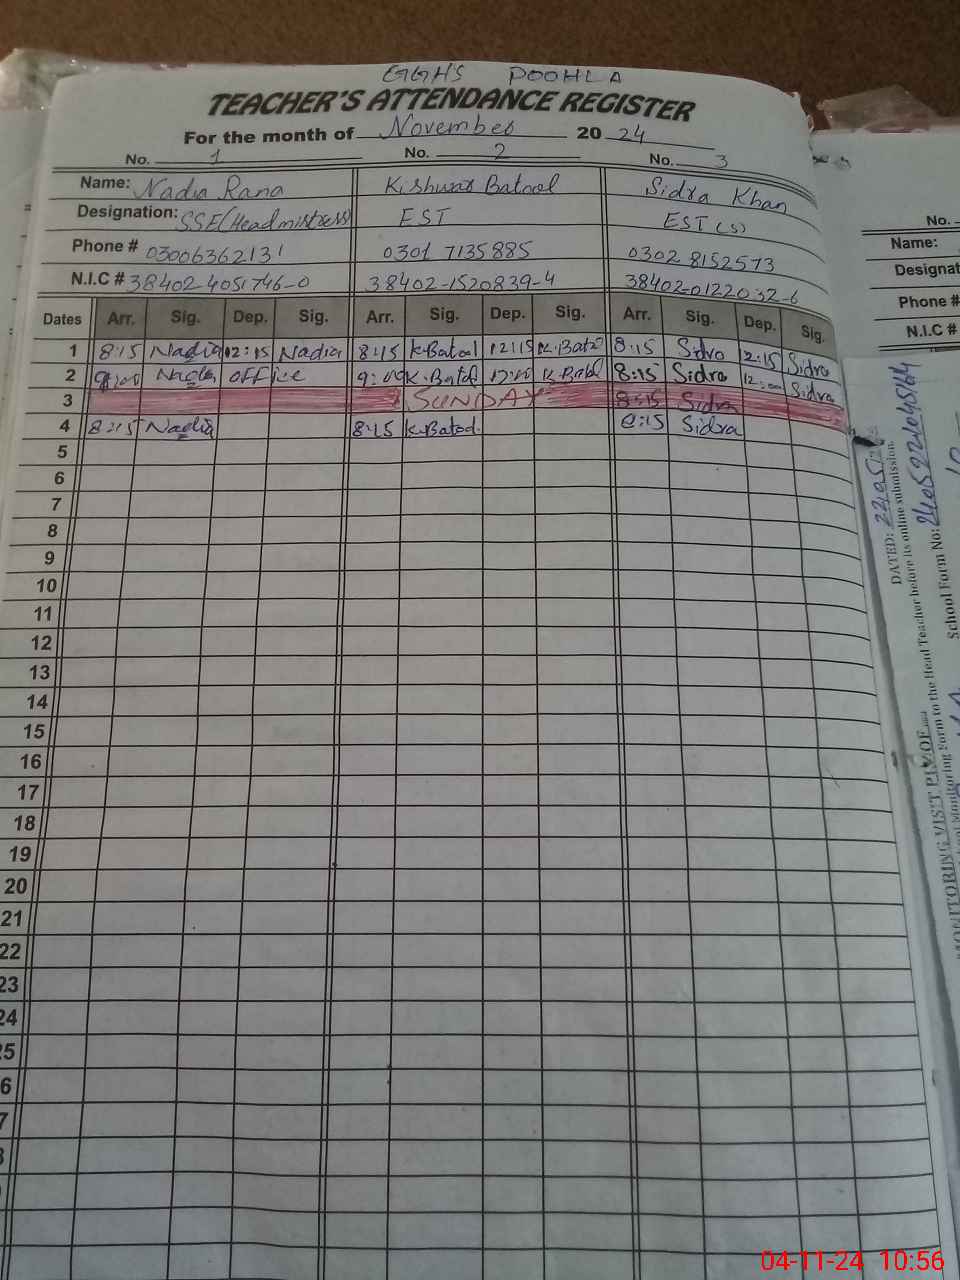 GGHS POOHLA
TEACHER'S ATTENDANCE REGISTER
For the month of November 20 24
No. 1 No. 2 No. 3
Name: Nadia Rana Kishwar Batool Sidra Khan
Designation: SSE(Headmistress) EST EST(S)
Phone # 03006362131 0301 7135885 0302 8152573
N.I.C # 38402-4051746-0 38402-1520839-4 38402-0122032-6
Dates Arr. Sig. Dep. Sig. Arr. Sig. Dep. Sig. Arr. Sig. Dep. Sig.
1 8:15 Nadia 12:15 Nadia 8:15 K.Batool 12:15 K.Batol 8:15 Sidra 12:15 Sidra
2 9:00 Nadia office 9:00 K.Batol 12:00 K.Batol 8:15 Sidra 12:00 Sidra
3 SUNDAY 8:15 Sidra
4 8:15 Nadia 8:15 K.Batool 8:15 Sidra
5
6
7
8
9
10
11
12
13
14
15
16
17
18
19
20
21
22
23
24
25
6
7
No.
Name:
Designat
Phone #
N.I.C #
MONITORING VISIT PIN OF
Monitoring Form to the Head Teacher before its online submission.
DATED:
School Form No:
04-11-24 10:56